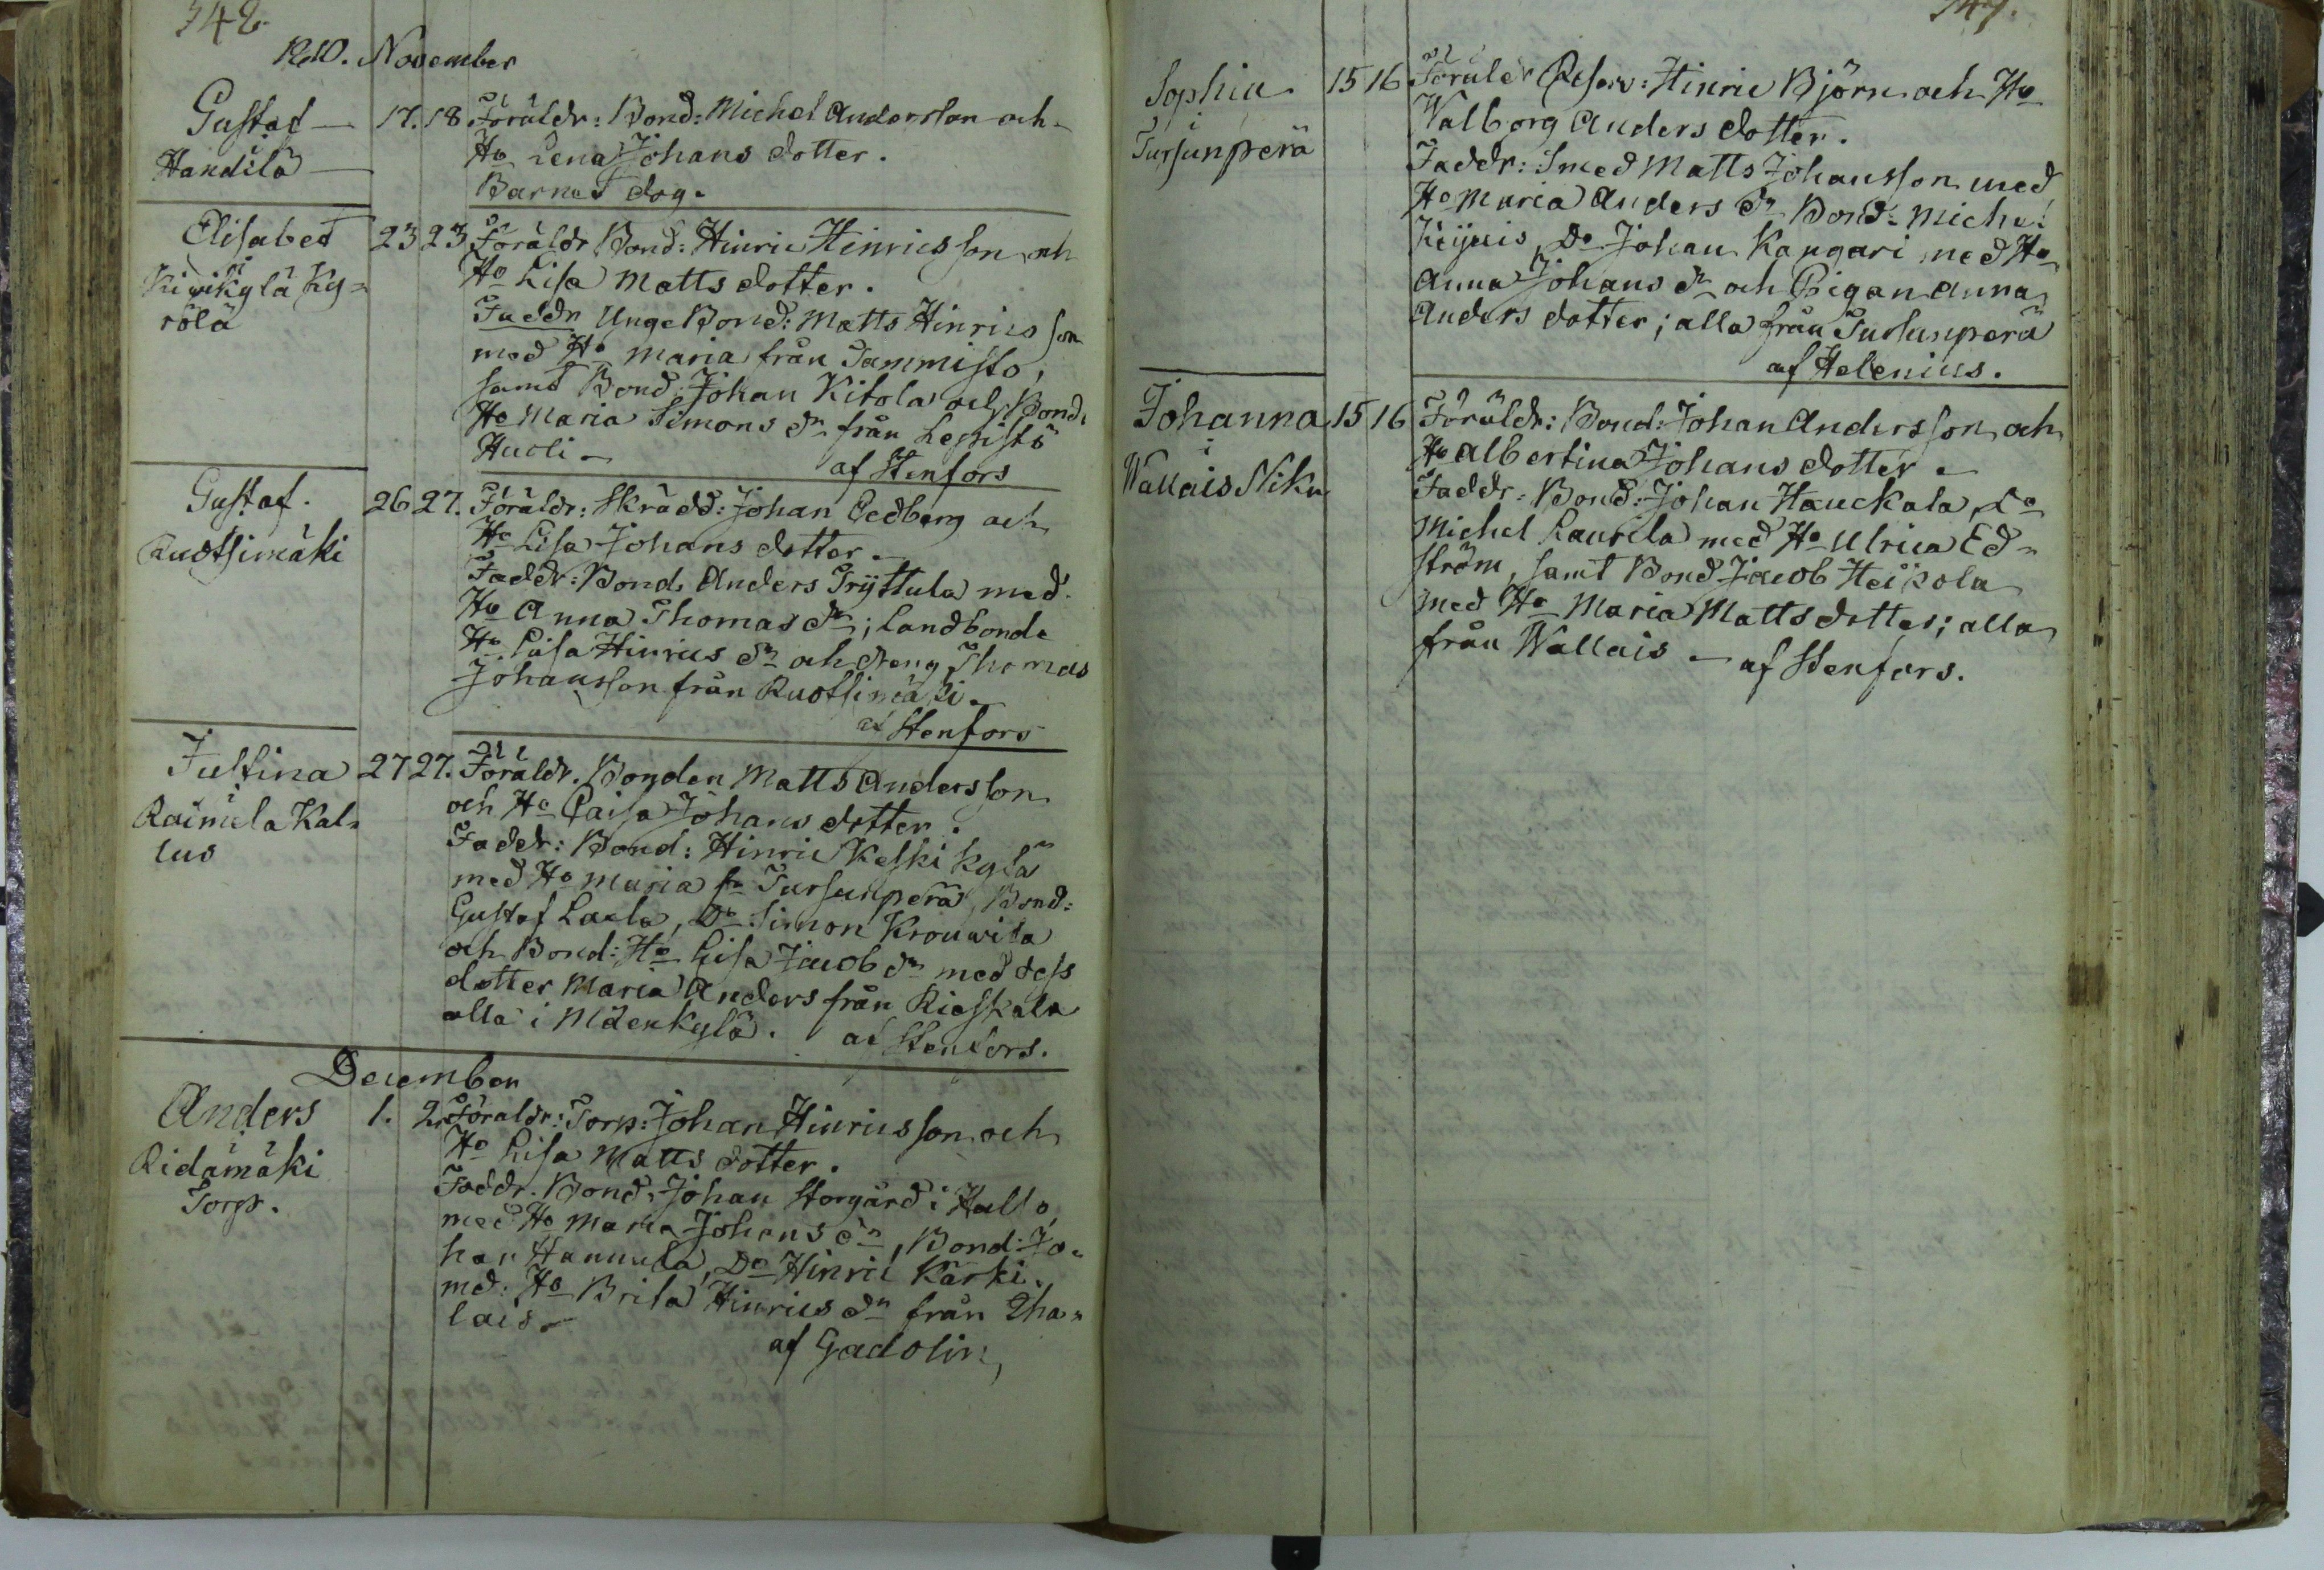 348
1810. November
Gustaf — 17. 18 Föräldr: Bond: Michel Andersson och
Handila — Ho Lena Johans dotter.
Barnet dog.
Elisabet 23 23 Föräldr Bond: Hinric Hinricsson och
i Ho Lisa Matts dotter.
Kivikylä Ky=
rölä
Faddr Unge Bond: Matts Hinricsson
med Ho Maria från Tammisto,
samt Bond Johan Kitola och Bond:
Ho Maria Simons dr från Lepistö
Huoli — af Stenfors
Gustaf. 26 27. Föräldr: Skrädd: Johan Cedberg och
Ruotsimäki Ho Lisa Johans dotter.
Faddr: Bond: Anders Tryttula med
Ho Anna Thomas dr; Landbonde
Ho Caisa Hinrics dr och dreng Thomas
Johansson från Ruotsimäki.
af Stenfors
Justina 27 27. Föräldr. Bonden Matts Andersson
i och Ho Caisa Johans dotter.
Raimela Kal=
lus
Faddr: Bond: Hinric Keskikylä
med Ho Maria fr Tursunperä, Bond:
Gustaf Laela, Do Simon Krouwila
och Bond: Ho Lisa Jacob dr med dess
dotter Maria Anders från Rieskala
alla i Mäenkylä. af Stenfors.
December
Anders 1. 2. Föräldr: Torp: Johan Hinricsson och
i Ho Lisa Matts dotter.
Ridämäki
Torp.
Faddr. Bond: Johan Storgård i Kallo
med Ho Maria Johans dr, Bond: Jo=
han Hannula, Do Hinric Kärki
med: Ho Brita Hinrics dr från
lais —
af Gadolin
Sophia 15 16 Föräldr Reserv: Hinric Björn och Ho
i Walborg Anders dotter.
Tursunperä
Faddr: Smed Matts Johansson med
Ho Maria Anders dr Bond: Michel
Do Johan Kangari med Ho
Anna Johans dr och Pigan Anna
Anders dotter; alla från Tursunperä
af Helenius.
Johanna 15 16 Föräldr: Bond: Johan Andersson och
i Ho Albertina Johans dotter.
Wallais Niku
Faddr: Bond: Johan Hauckala, Do
Michel Laurila med Ho Ulrica Ed=
ström, samt Bond Jacob Heikola
med Ho Maria Matts dotter; alla
från Wallais — af Stenfors.